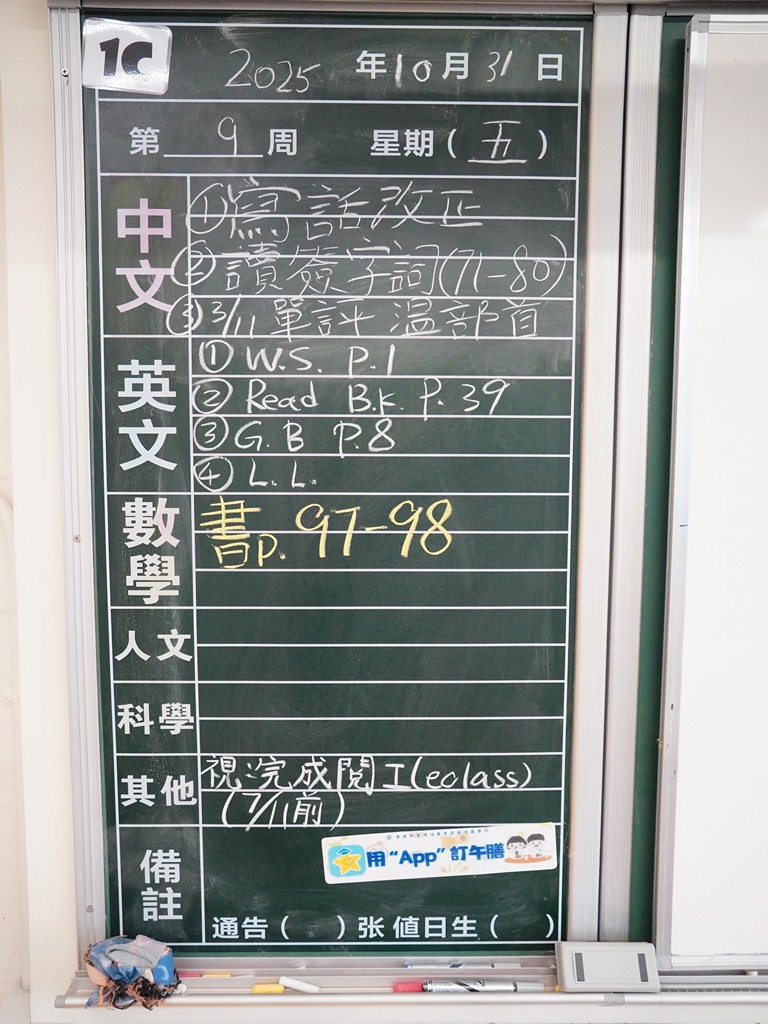 1C
2025 年 10 月 31 日
第 9 周 星期 ( 五 )
中文
① 寫話改正
② 讀簽字詞(71-80)
③ 3/11 單評 温部首
英文
① W.S. P.1
② Read B.k. P. 39
③ G.B P.8
④ L.L.
數學
書p. 97-98
人文
科學
其他
視浣成閱工(eclass)
(7/11前)
備註
用“App”訂午膳
通告 ( ) 张 值日生 ( )